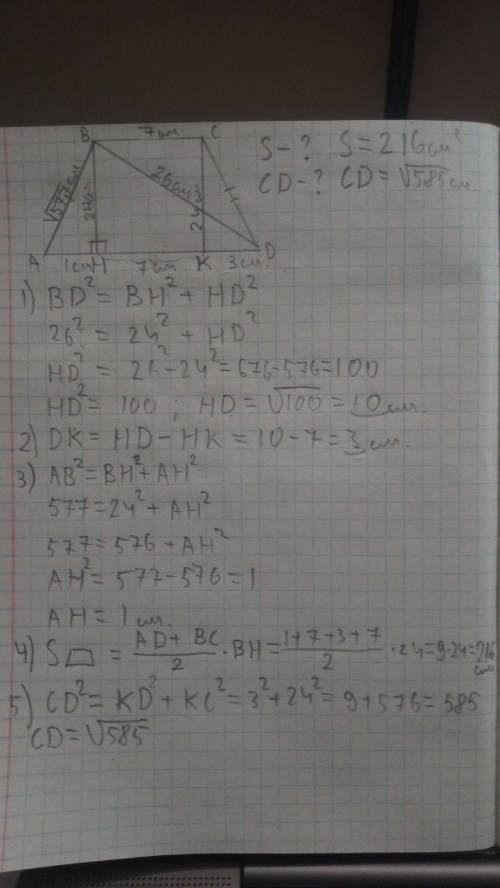 B 7см C
S-? S=216см²
CD-? CD=√585см.
√577см 24см 26см 24
A 1см H 7см K 3см. D
1) BD²=BH²+HD²
26²=24²+HD²
HD²=26²-24²=676-576=100
HD²=100; HD=√100=10см.
2) DK=HD-HK=10-7=3см.
3) AB²=BH²+AH²
577=24²+AH²
577=576+AH²
AH²=577-576=1
AH=1см.
4) S=(AD+BC)/2·BH=(1+7+3+7)/2·24=9·24=216см
5) CD²=KD²+KC²=3²+24²=9+576=585
CD=√585